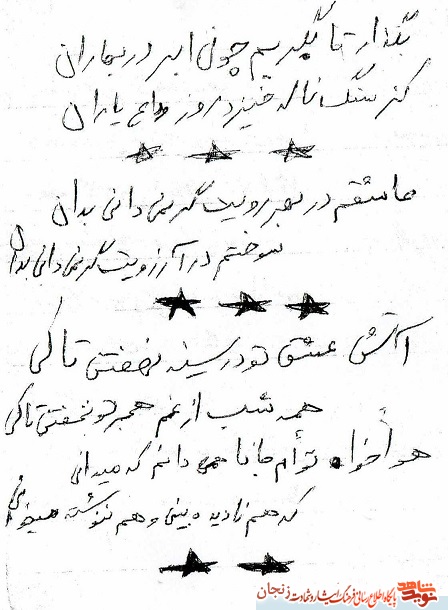 بگذار تا بگریم چون ابر در بهاران
کز سنگ ناله خیزد روز وداع یاران
عاشقم در بهر رویت گر نمی دانی بدان
سوختم در آرزویت گر نمی دانی بدان
آتش عشق تو در سینه نهفتن تا کی
همه شب از غم هجر تو نخفتن تا کی
هوأخواه توأم جانا همی دانم که میدانی
که هم نادیده بینی و هم ننوشته میخوانی
شاهد
نوید
پایگاه اطلاع رسانی فرهنگ ایثار و شهادت زنجان